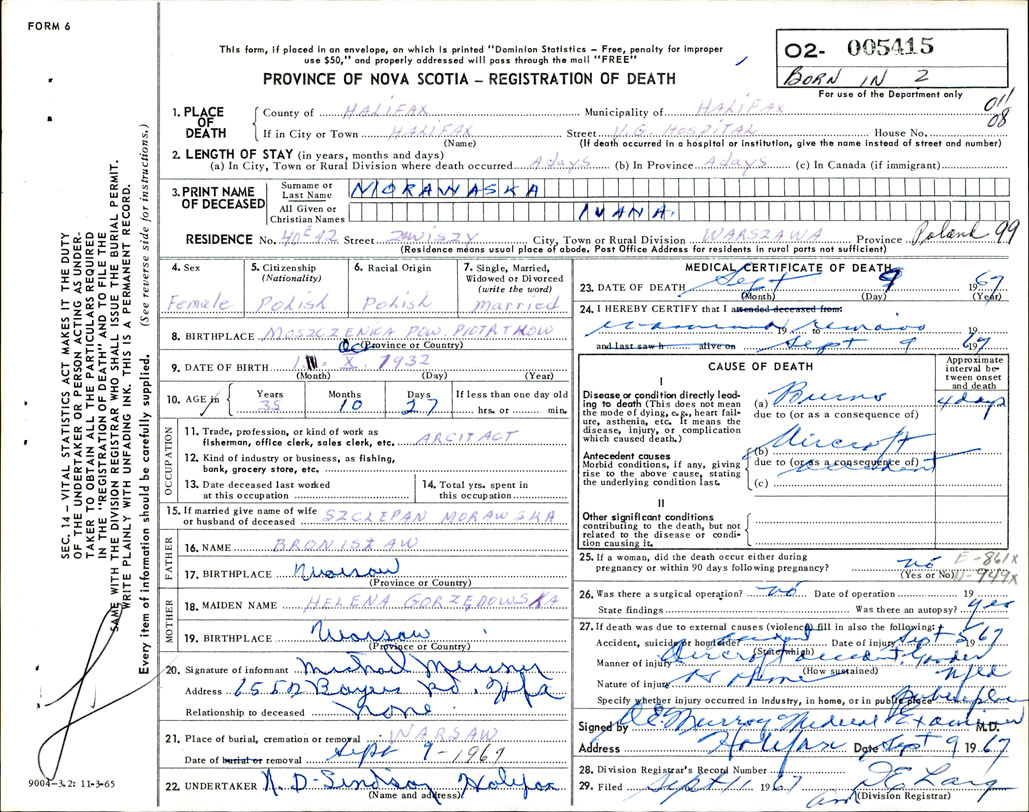 FORM 6
This form, if placed in an envelope, on which is printed "Dominion Statistics – Free, penalty for improper
use $50," and properly addressed will pass through the mail "FREE"
PROVINCE OF NOVA SCOTIA – REGISTRATION OF DEATH
02- 005415
BORN IN 2
For use of the Department only
011
08
1. PLACE OF DEATH
County of HALIFAX Municipality of HALIFAX
If in City or Town HALIFAX Street V.G. HOSPITAL House No.
(Name) (If death occurred in a hospital or institution, give the name instead of street and number)
2. LENGTH OF STAY (in years, months and days)
(a) In City, Town or Rural Division where death occurred 4 days (b) In Province 4 days (c) In Canada (if immigrant)
3. PRINT NAME OF DECEASED
Surname or Last Name MORAWASKA
All Given or Christian Names IVANA.
RESIDENCE No. 40E42 Street ZAWISZY City, Town or Rural Division WARSZAWA Province Poland 99
(Residence means usual place of abode. Post Office Address for residents in rural parts not sufficient)
4. Sex
Female
5. Citizenship
(Nationality)
Polish
6. Racial Origin
Polish
7. Single, Married,
Widowed or Divorced
(write the word)
married
8. BIRTHPLACE MOSZCZENICA POW. PIOTRTKOW
(Province or Country)
9. DATE OF BIRTH Oct X. 1932
(Month) (Day) (Year)
10. AGE in
Years 35
Months 10
Days 27
If less than one day old
hrs. or min.
OCCUPATION
11. Trade, profession, or kind of work as
fisherman, office clerk, sales clerk, etc. ARCITACT
12. Kind of industry or business, as fishing,
bank, grocery store, etc.
13. Date deceased last worked
at this occupation
14. Total yrs. spent in
this occupation
15. If married give name of wife
or husband of deceased SZCZEPAN MORAWSKA
FATHER
16. NAME BRONISŁAW
17. BIRTHPLACE Warsaw
(Province or Country)
MOTHER
18. MAIDEN NAME HELENA GORZĘDOWSKA
19. BIRTHPLACE Warsaw
(Province or Country)
20. Signature of informant Michael
Address 6552 Bayers Rd. Hfx
Relationship to deceased none.
21. Place of burial, cremation or removal WARSAW
Date of burial or removal Sept 9 - 1967
22. UNDERTAKER N. D. Lindsay Halifax
(Name and address)
MEDICAL CERTIFICATE OF DEATH
23. DATE OF DEATH Sept 9 1967
(Month) (Day) (Year)
24. I HEREBY CERTIFY that I attended deceased from:
examined 19 remains 19
and last saw h alive on Sept 9 1967
CAUSE OF DEATH
Approximate
interval be-
tween onset
and death
I
Disease or condition directly lead-
ing to death (This does not mean
the mode of dying, e.g., heart fail-
ure, asthenia, etc. It means the
disease, injury, or complication
which caused death.)
(a) Burns 4 days
due to (or as a consequence of)
Antecedent causes
Morbid conditions, if any, giving
rise to the above cause, stating
the underlying condition last.
(b) Aircraft
due to (or as a consequence of) accident
(c)
II
Other significant conditions
contributing to the death, but not
related to the disease or condi-
tion causing it.
25. If a woman, did the death occur either during
pregnancy or within 90 days following pregnancy? no
(Yes or No)
E-861X
N-949X
26. Was there a surgical operation? no Date of operation 19
State findings Was there an autopsy? yes
27. If death was due to external causes (violence) fill in also the following:
Accident, suicide or homicide? accident Date of injury Sept 5 1967
(State which)
Manner of injury Aircraft accident, Gander Nfld
(How sustained)
Nature of injury
Specify whether injury occurred in Industry, in home, or in public place Public place
Signed by Murray Medical Examiner M.D.
Address Halifax Date Sept 9 1967
28. Division Registrar's Record Number
29. Filed Sept 11 1967
(Division Registrar)
SEC. 14 – VITAL STATISTICS ACT MAKES IT THE DUTY
OF THE UNDERTAKER OR PERSON ACTING AS UNDER-
TAKER TO OBTAIN ALL THE PARTICULARS REQUIRED
IN THE "REGISTRATION OF DEATH" AND TO FILE THE
SAME WITH THE DIVISION REGISTRAR WHO SHALL ISSUE THE BURIAL PERMIT.
WRITE PLAINLY WITH UNFADING INK. THIS IS A PERMANENT RECORD.
Every item of information should be carefully supplied. (See reverse side for instructions.)
9004-3.2: 11-3-65